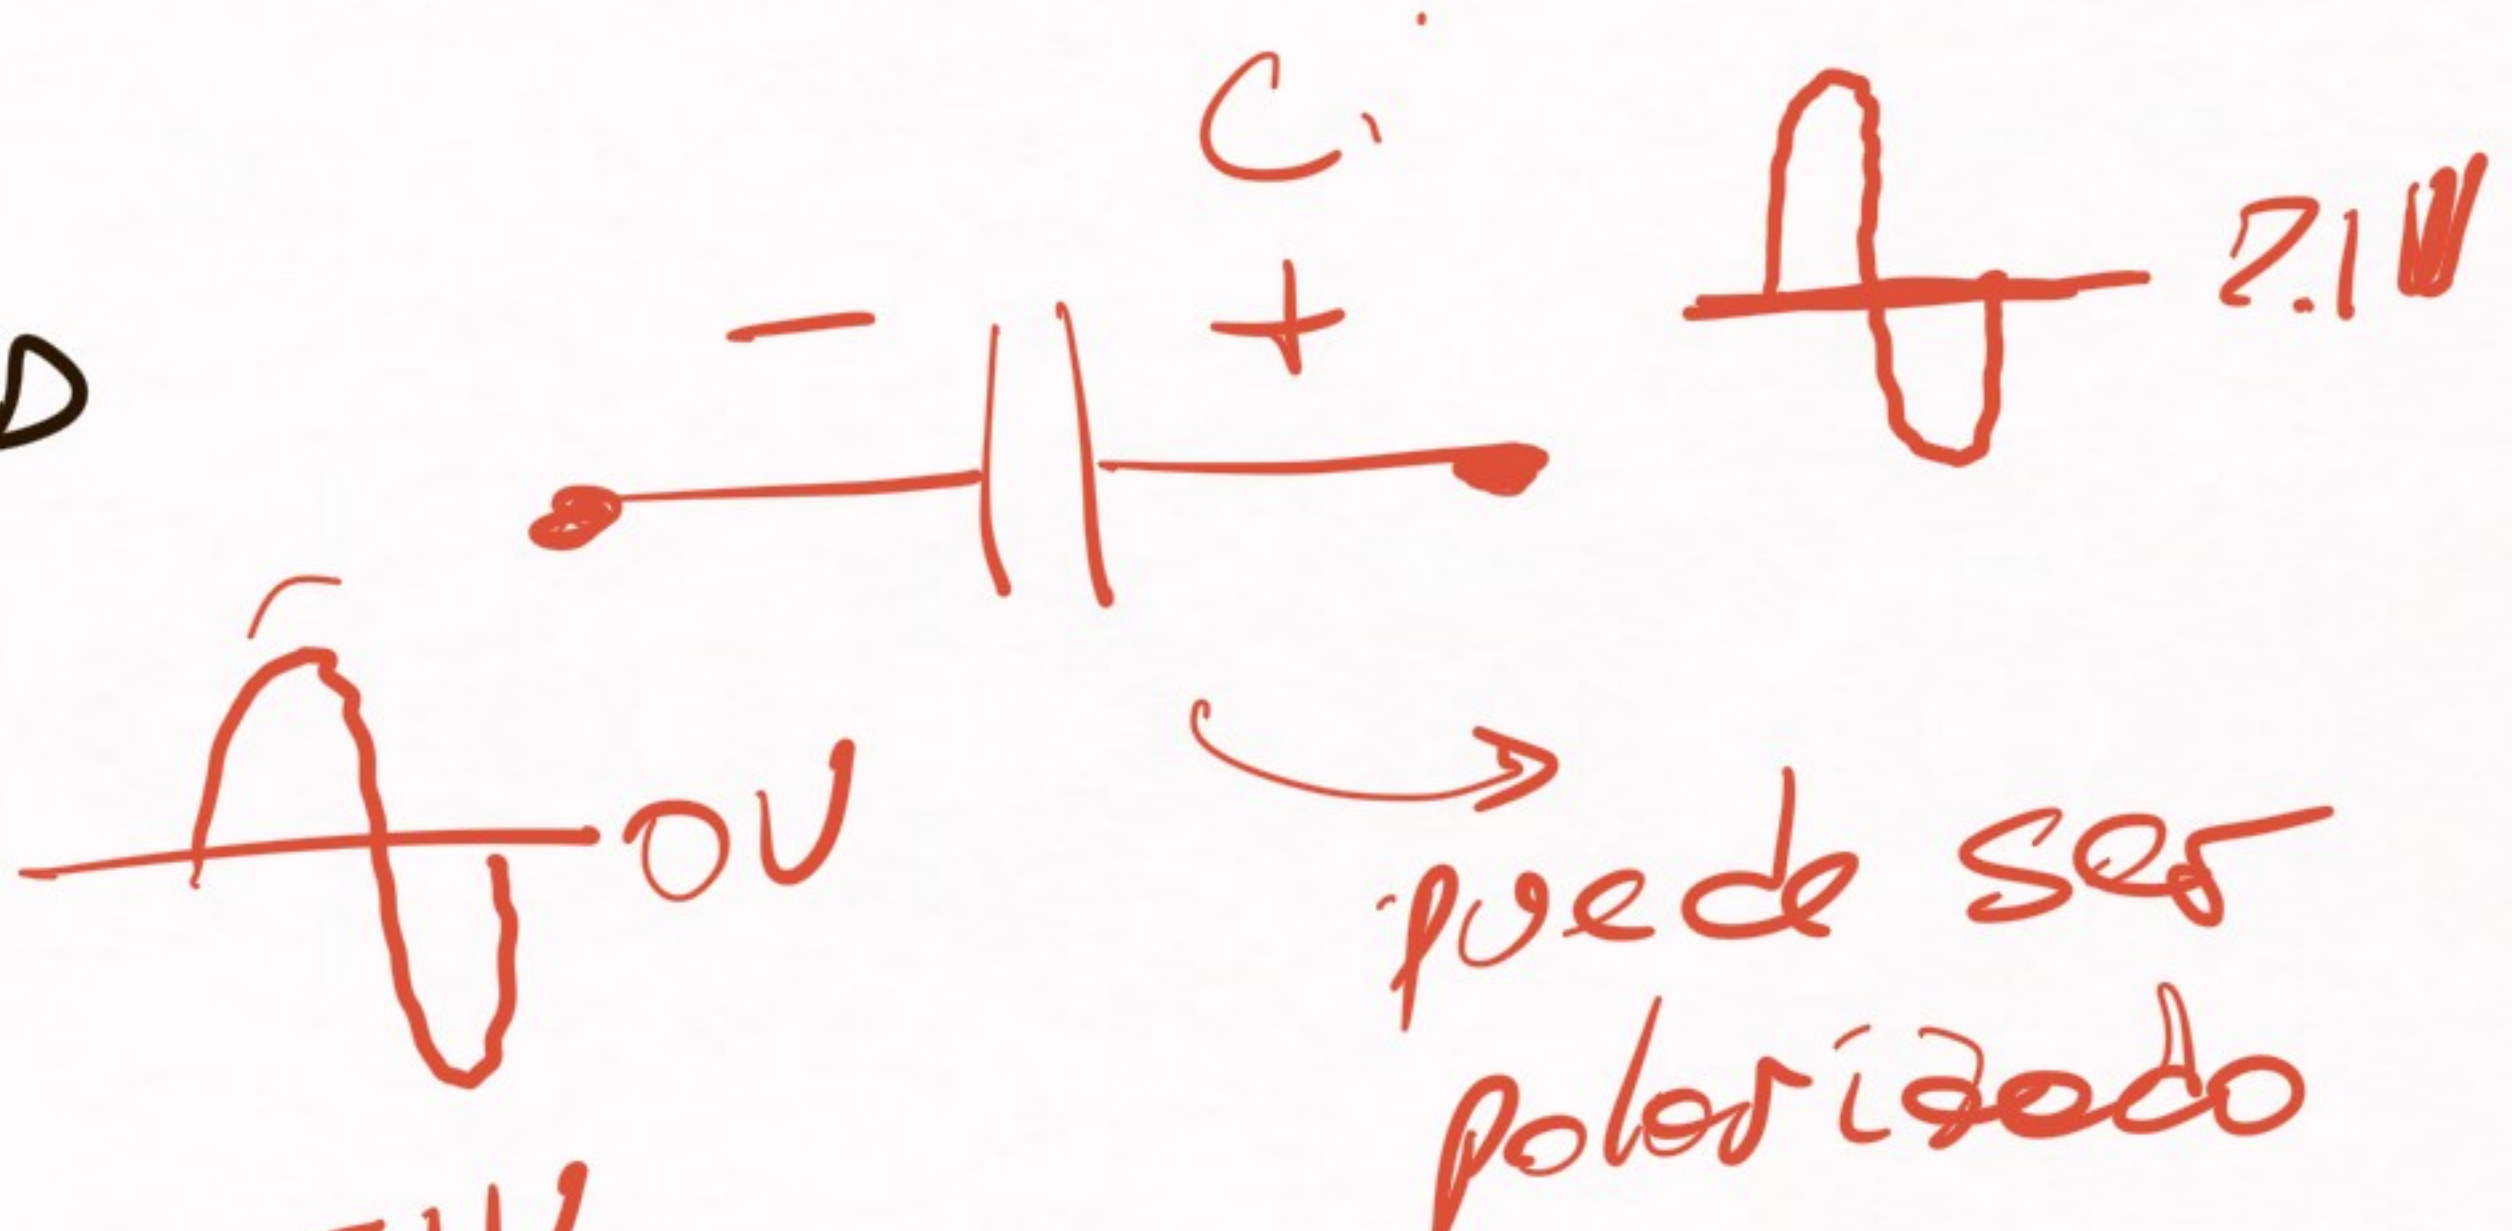 Ci
- +
2.1V
0V
puede ser
polarizado